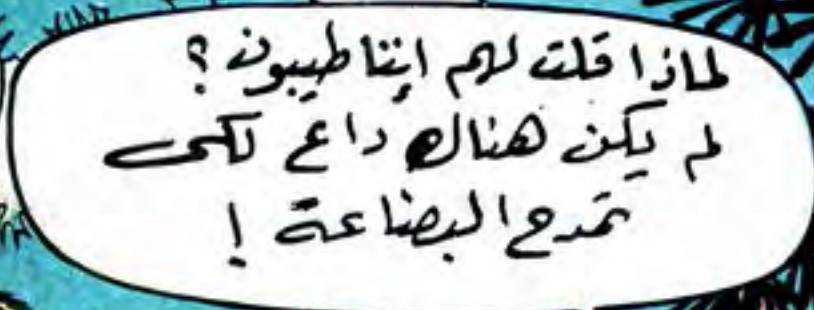 لماذا قلت لهم إننا طيبون ؟
لم يكن هناك داع لكى
تمدح البضاعة !